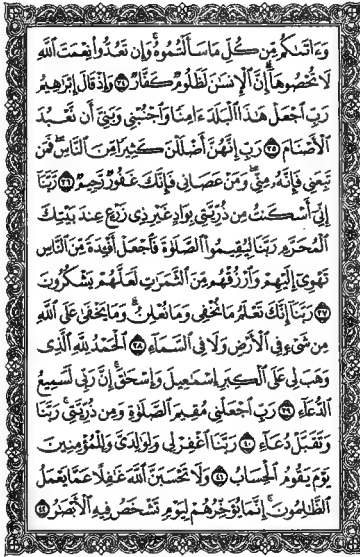 وَءَاتَىٰكُم مِّن كُلِّ مَا سَأَلْتُمُوهُ ۚ وَإِن تَعُدُّوا۟ نِعْمَتَ ٱللَّهِ
لَا تُحْصُوهَآ ۗ إِنَّ ٱلْإِنسَٰنَ لَظَلُومٌ كَفَّارٌ ﴿٣٤﴾ وَإِذْ قَالَ إِبْرَٰهِيمُ
رَبِّ ٱجْعَلْ هَٰذَا ٱلْبَلَدَ ءَامِنًا وَٱجْنُبْنِى وَبَنِىَّ أَن نَّعْبُدَ
ٱلْأَصْنَامَ ﴿٣٥﴾ رَبِّ إِنَّهُنَّ أَضْلَلْنَ كَثِيرًا مِّنَ ٱلنَّاسِ ۖ فَمَن
تَبِعَنِى فَإِنَّهُۥ مِنِّى ۖ وَمَنْ عَصَانِى فَإِنَّكَ غَفُورٌ رَّحِيمٌ ﴿٣٦﴾ رَّبَّنَآ
إِنِّىٓ أَسْكَنتُ مِن ذُرِّيَّتِى بِوَادٍ غَيْرِ ذِى زَرْعٍ عِندَ بَيْتِكَ
ٱلْمُحَرَّمِ رَبَّنَا لِيُقِيمُوا۟ ٱلصَّلَوٰةَ فَٱجْعَلْ أَفْـِٔدَةً مِّنَ ٱلنَّاسِ
تَهْوِىٓ إِلَيْهِمْ وَٱرْزُقْهُم مِّنَ ٱلثَّمَرَٰتِ لَعَلَّهُمْ يَشْكُرُونَ
﴿٣٧﴾ رَبَّنَآ إِنَّكَ تَعْلَمُ مَا نُخْفِى وَمَا نُعْلِنُ ۗ وَمَا يَخْفَىٰ عَلَى ٱللَّهِ
مِن شَىْءٍ فِى ٱلْأَرْضِ وَلَا فِى ٱلسَّمَآءِ ﴿٣٨﴾ ٱلْحَمْدُ لِلَّهِ ٱلَّذِى
وَهَبَ لِى عَلَى ٱلْكِبَرِ إِسْمَٰعِيلَ وَإِسْحَٰقَ ۚ إِنَّ رَبِّى لَسَمِيعُ
ٱلدُّعَآءِ ﴿٣٩﴾ رَبِّ ٱجْعَلْنِى مُقِيمَ ٱلصَّلَوٰةِ وَمِن ذُرِّيَّتِى ۚ رَبَّنَا
وَتَقَبَّلْ دُعَآءِ ﴿٤٠﴾ رَبَّنَا ٱغْفِرْ لِى وَلِوَٰلِدَىَّ وَلِلْمُؤْمِنِينَ
يَوْمَ يَقُومُ ٱلْحِسَابُ ﴿٤١﴾ وَلَا تَحْسَبَنَّ ٱللَّهَ غَٰفِلًا عَمَّا يَعْمَلُ
ٱلظَّٰلِمُونَ ۚ إِنَّمَا يُؤَخِّرُهُمْ لِيَوْمٍ تَشْخَصُ فِيهِ ٱلْأَبْصَٰرُ ﴿٤٢﴾